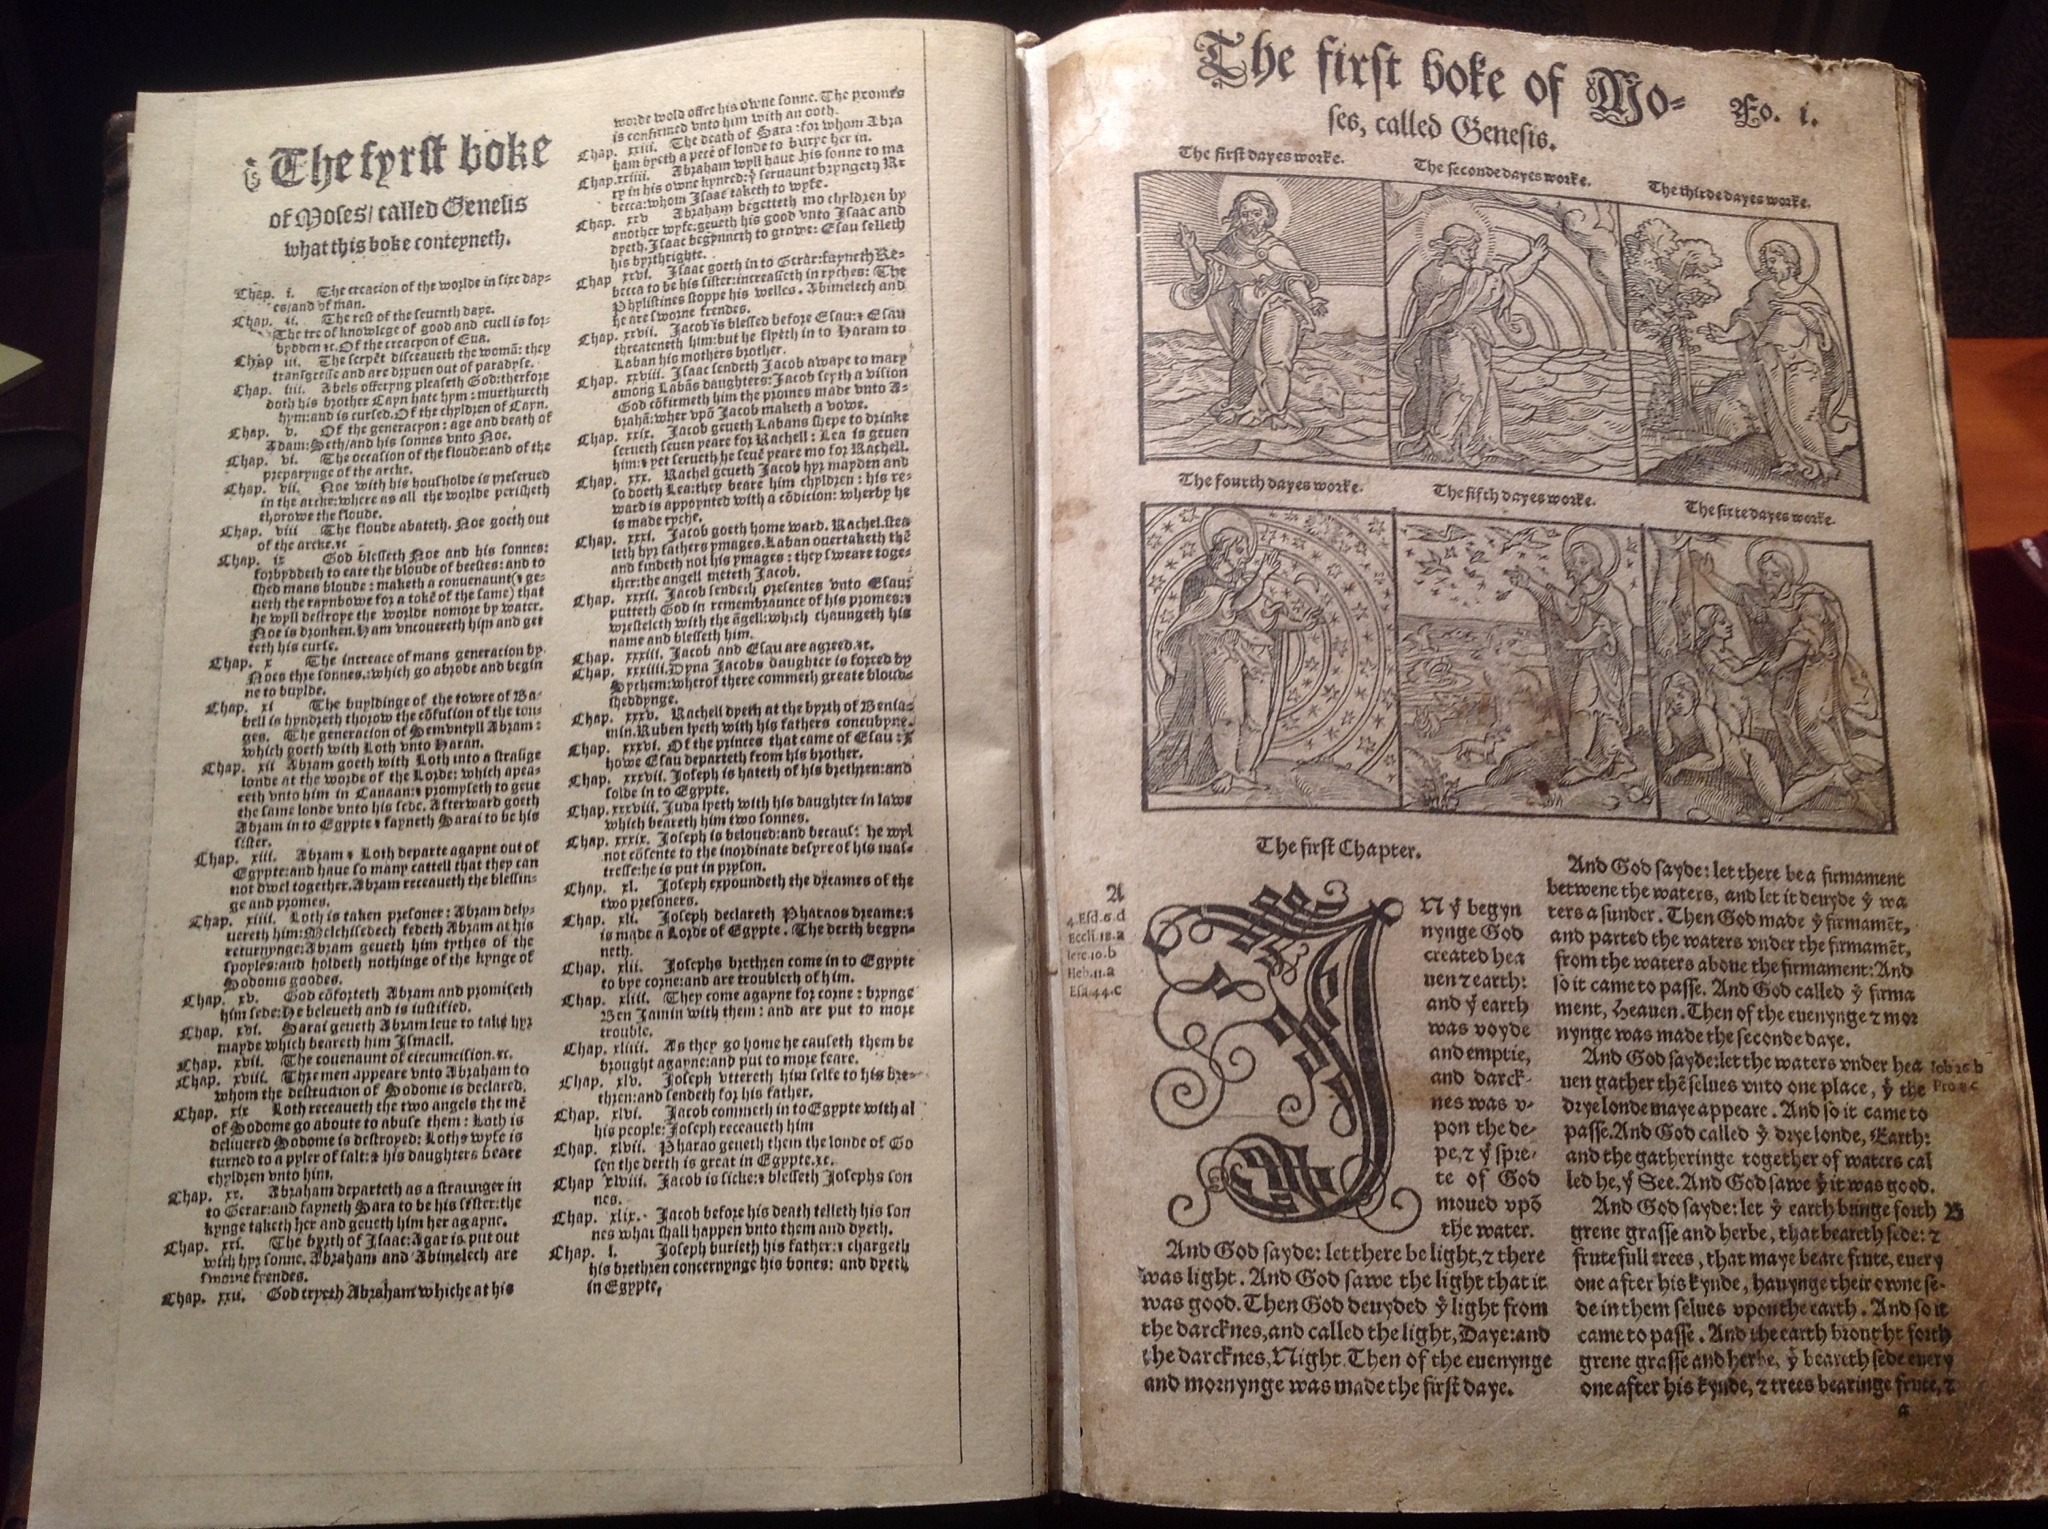 The fyrst boke
of Moses/ called Genesis
what this boke conteyneth.
Chap. i. The creacion of the worlde in sixe day=
es/and of man.
Chap. ii. The rest of the seuenth daye.
The tre of knowlege of good and euell is for-
bydden ⁊c. Of the creacyon of Eua.
Chap iii. The serpēt disceaueth the womā: they
transgresse and are dryuen out of paradyse.
Chap. iiii. Abels offeryng pleaseth God:therfore
doth his brother Cayn hate hym : murthureth
hym:and is cursed. Of the chyldren of Cayn.
Chap. v. Of the generacyon : age and death of
Adam:Seth/and his sonnes vnto Noe.
Chap. vi. The occasion of the floude:and of the
preparynge of the arcke.
Chap. vii. Noe with his housholde is preserued
in the arcke:where as all the worlde perisheth
thorowe the floude.
Chap. viii The floude abateth. Noe goeth out
of the arcke.⁊c
Chap. ix God blesseth Noe and his sonnes:
forbyddeth to eate the bloude of beestes: and to
shed mans bloude : maketh a conuenaunt(⁊ ge-
ueth the raynbowe for a tokē of the same) that
he wyll destroye the worlde nomore by water.
Noe is dronken. Ham vncouereth him and get
teth his curse.
Chap. x The increace of mans generacion by
Noes thre sonnes.:which go abrode and begin
ne to buylde.
Chap. xi The buyldinge of the towre of Ba-
bell is hyndreth thorow the cōfusion of the ton-
ges. The generacion of Sem vntyll Abram :
which goeth with Loth vnto Haran.
Chap. xii Abram goeth with Loth into a straüge
londe at the worde of the Lorde: which apea-
reth vnto him in Canaan:⁊ promyseth to geue
the same londe vnto his sede. Afterward goeth
Abram in to Egypte ⁊ fayneth Sarai to be his
sister.
Chap. xiii. Abram ⁊ Loth departe agayne out of
Egypte:and haue so many cattell that they can
not dwel together. Abram receaueth the blessin-
ge and promes.
Chap. xiiii. Loth is taken presoner : Abram dely-
uereth him:Melchisedech fedeth Abram at his
returnynge:Abram geueth him tythes of the
spoyles:and holdeth nothinge of the kynge of
Sodoms goodes.
Chap. xv. God cōforteth Abram and promiseth
him sede:He beleueth and is iustified.
Chap. xvi. Sarai geueth Abram leue to take hyr
mayde which beareth him Ismaell.
Chap. xvii. The couenaunt of circumcision.⁊c.
Chap. xviii. Thre men appeare vnto Abraham to
whom the destruction of Sodome is declared.
Chap. xix Loth receaueth the two angels the mē
of Sodome go aboute to abuse them : Loth is
deliuered Sodome is destroyed: Loths wyfe is
turned to a pyler of salt:⁊ his daughters beare
chyldren vnto him.
Chap. xx. Abraham departeth as a straunger in
to Gerar:and fayneth Sara to be his sester:the
kynge taketh her and geueth him her agayne.
Chap. xxi. The byrth of Isaac:Agar is put out
with hyr sonne. Abraham and Abimelech are
sworne frendes.
Chap. xxii. God tryeth Abraham whiche at his
worde wold offre his owne sonne. The promes
is confirmed vnto him with an ooth.
Chap. xxiii. The death of Sara :for whom Abra
ham byeth a pece of londe to burye her in.
Chap.xxiiii. Abraham wyll haue his sonne to ma
ry in his owne kynred:ẏ seruaunt bryngeth Re
becca:whom Isaac taketh to wyfe.
Chap. xxv Abraham begetteth mo chyldren by
another wyfe:geueth his good vnto Isaac and
dyeth. Isaac begynneth to growe: Esau selleth
his byrthrighte.
Chap xxvi. Isaac goeth in to Gerar:fayneth Re-
becca to be his sister:increaseth in ryches: The
Phylistines stoppe his welles. Abimelech and
he are sworne frendes.
Chap. xxvii. Jacob is blessed before Esau:⁊ Esau
threateneth him:but he flyeth in to Haram to
Laban his mothers brother.
Chap. xxviii. Isaac sendeth Jacob awaye to mary
among Labās daughters: Jacob seyth a vision
God cōfirmeth him the promes made vnto A-
brahā:wher vpō Jacob maketh a vowe.
Chap. xxix. Jacob geueth Labans shepe to drinke
serueth seuen yeare for Rachell : Lea is geuen
him:⁊ yet serueth he seuē yeare mo for Rachell.
Chap. xxx. Rachel geueth Jacob hyr mayden and
so doeth Lea:they beare him chyldren : his re-
ward is appoynted with a cōdition: wherby he
is made ryche.
Chap. xxxi. Jacob goeth home ward. Rachel.stea
leth hyr fathers ymages. Laban ouertaketh thē
and findeth not his ymages : they sweare toge-
ther:the angell meteth Jacob.
Chap. xxxii. Jacob sendeth presentes vnto Esau:
putteth God in remembraunce of his promes:⁊
wresteleth with the āgell:which chaungeth his
name and blesseth him.
Chap. xxxiii. Jacob and Esau are agreed.⁊c.
Chap. xxxiiii. Dyna Jacobs daughter is forced by
Sychem:wherof there commeth greate bloud-
sheddynge.
Chap. xxxv. Rachell dyeth at the byrth of Benia-
min. Ruben lyeth with his fathers concubyne.
Chap. xxxvi. Of the princes that came of Esau : ⁊
howe Esau departeth from his brother.
Chap. xxxvii. Joseph is hateth of his brethren:and
solde in to Egypte.
Chap. xxxviii. Juda lyeth with his daughter in lawe
which beareth him two sonnes.
Chap. xxxix. Joseph is beloued:and because he wyl
not cōsente to the inordinate desyre of his mas-
tresse:he is put in pryson.
Chap. xl. Joseph expoundeth the dreames of the
two presoners.
Chap. xli. Joseph declareth Pharaos dreame:⁊
is made a Lorde of Egypte. The derth begyn-
neth.
Chap. xlii. Josephs brethren come in to Egypte
to bye corne:and are troubleth of him.
Chap. xliii. They come agayne for corne : brynge
Ben Jamin with them : and are put to more
trouble.
Chap. xliiii. As they go home he causeth them be
brought agayne:and put to more feare.
Chap. xlv. Joseph vttereth him selfe to his bre-
thren:and sendeth for his father.
Chap. xlvi. Jacob commeth in to Egypte with al
his people: Joseph receaueth him
Chap. xlvii. Pharao geueth them the londe of Go
sen the derth is great in Egypte.⁊c.
Chap xlviii. Jacob is sicke:⁊ blesseth Josephs son
nes.
Chap. xlix. Jacob before his death telleth his son
nes what shall happen vnto them and dyeth.
Chap. l. Joseph burieth his father:⁊ chargeth
his brethren concernynge his bones: and dyeth
in Egypte.
The first boke of Mo=
Fo. i.
ses, called Genesis.
The first dayes worke.
The seconde dayes worke.
The thirde dayes worke.
The fourth dayes worke.
The fifth dayes worke.
The sixte dayes worke.
The first Chapter.
A
4.Esd.6.d
Eccli.18.a
Iere.10.b
Heb.11.a
Esa.44.c
IN ẏ begyn
nynge God
created hea
uen ⁊ earth:
and ẏ earth
was voyde
and emptie,
and darck-
nes was v-
pon the de-
pe,⁊ ẏ spre-
te of God
moued vpō
the water.
And God sayde: let there be light,⁊ there
was light. And God sawe the light that it
was good. Then God deuyded ẏ light from
the darcknes,and called the light, Daye:and
the darcknes, Night. Then of the euenynge
and mornynge was made the first daye.
And God sayde: let there be a firmament
betwene the waters, and let it deuyde ẏ wa
ters a sunder. Then God made ẏ firmamēt,
and parted the waters vnder the firmamēt,
from the waters aboue the firmament: And
so it came to passe. And God called ẏ firma
ment, Heauen. Then of the euenynge ⁊ mor
nynge was made the seconde daye.
And God sayde:let the waters vnder hea
uen gather thē selues vnto one place, ẏ the
drye londe maye appeare. And so it came to
passe. And God called ẏ drye londe, Earth:
and the gatheringe together of waters cal
led he,ẏ See. And God sawe ẏ it was good.
Iob 26 b
Pro 8 c
And God sayde: let ẏ earth bringe forth
B
grene grasse and herbe, that beareth sede: ⁊
frutefull trees, that maye beare frute, euery
one after his kynde, hauynge their owne se-
de in them selues vpon the earth. And so it
came to passe. And the earth brought forth
grene grasse and herbe, ẏ beareth sede euery
one after his kynde, ⁊ trees bearinge frute, ⁊
a